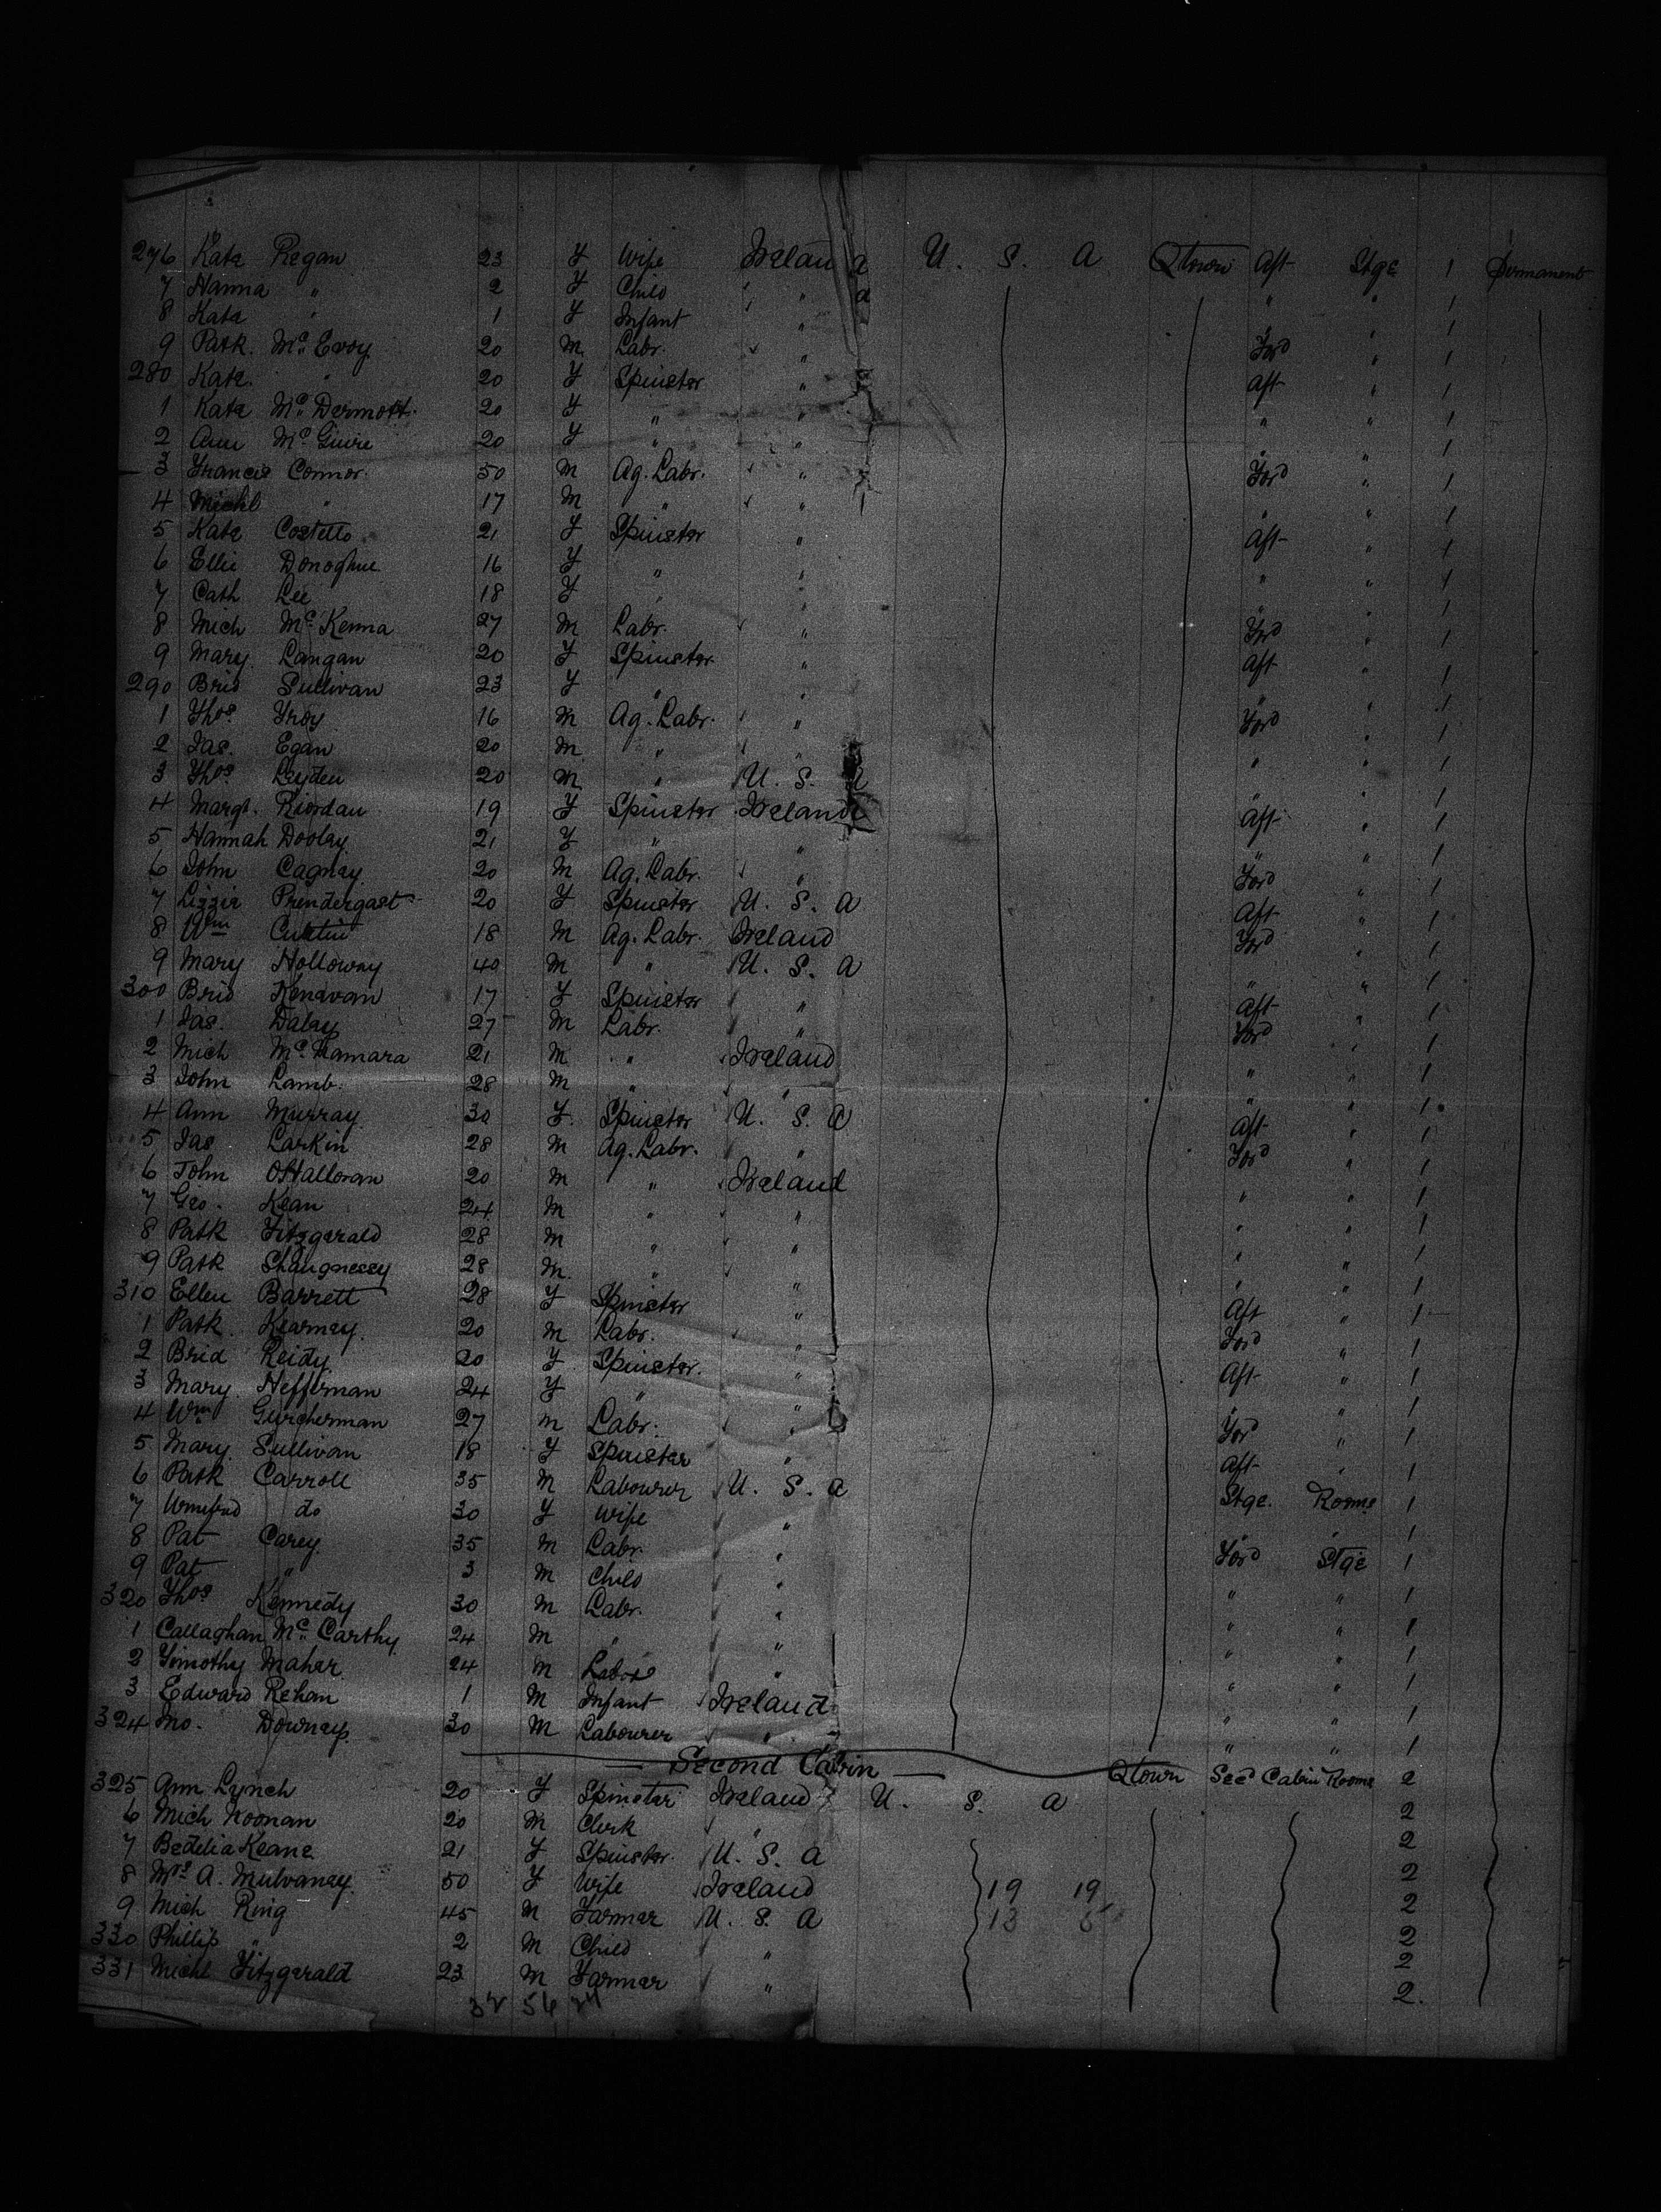 276 Kate Regan 23 F Wife Ireland U. S. A Qtown Aft Stge 1 Permanent
7 Hanna " 2 F Child " " " 1
8 Kate " 1 F Infant " 1
9 Patk. Mc. Evoy 20 M Labr. " Ford " 1
280 Kate " 20 F Spinster " Aft " 1
1 Kate Mc. Dermott. 20 F " " " " 1
2 Ann Mc. Guire 20 F " " " " 1
3 Francis Connor. 50 M Ag. Labr. " Ford " 1
4 Michl " 17 M " " " " 1
5 Kate Costello 21 F Spinster " Aft " 1
6 Ellie Donoghue 16 F " " " " 1
7 Cath Lee 18 F " " " " 1
8 Mich Mc. Kenna 27 M Labr. " Ford " 1
9 Mary Langan 20 F Spinster. " Aft " 1
290 Brid Sullivan 23 F " " " " 1
1 Thos. Troy 16 M Ag. Labr. " Ford " 1
2 Jas. Egan 20 M " " " " 1
3 Thos Leyden 20 M " U. S. A " " 1
4 Margt. Riordan 19 F Spinster Ireland Aft " 1
5 Hannah Dooley 21 F " " " " 1
6 John Cagney 20 M Ag. Labr. " Ford " 1
7 Lizzie Prendergast 20 F Spinster U. S. A Aft " 1
8 Wm Curtin 18 M Ag. Labr. Ireland Ford " 1
9 Mary Holloway 40 M " U. S. A " " 1
300 Brid Kenavan 17 F Spinster " Aft " 1
1 Jas. Daley 27 M Labr. " Ford " 1
2 Mich Mc. Namara 21 M " Ireland " " 1
3 John Lamb. 28 M " " " " 1
4 Ann Murray 30 F. Spinster U. S. A Aft " 1
5 Jas Larkin 28 M Ag. Labr. " Ford " 1
6 John OHalloran 20 M " Ireland " " 1
7 Geo. Kean 24 M " " " " 1
8 Patk Fitzgerald 28 M " " " " 1
9 Patk Shaugnessy 28 M. " " " " 1
310 Ellen Barrett 28 F Spinster " Aft " 1
1 Patk. Kearney 20 M Labr. " Ford " 1
2 Brid Reidy 20 F Spinster. " Aft " 1
3 Mary Heffernan 24 F " " " " 1
4 Wm 27 M Labr. " For " 1
5 Mary Sullivan 18 F Spinster " Aft " 1
6 Patk Carroll 35 M Labourer U. S. A Stge. Rooms 1
7 do 30 F Wife " " " 1
8 Pat Carey 35 M Labr. " Ford Stge 1
9 Pat " 3 M Child " " " 1
320 Thos Kennedy 30 M Labr. " " " 1
1 Callaghan Mc. Carthy 24 M " " " " 1
2 Timothy Maher 24 M " " " 1
3 Edward Rehan 1 M Infant Ireland " " 1
324 Jno. Downey 30 M Labourer " " " 1
Second Cabin
325 Ann Lynch 20 F Spinster Ireland U. S. A Qtown Sec Cabin Rooms 2
6 Mich Noonan 20 M Clerk " 2
7 Bedelia Keane 21 F Spinster. U. S. A 2
8 Mrs A. Mulvaney 50 F Wife Ireland 19 19 2
9 Mich Ring 45 M Farmer U. S. A 13 2
330 Phillip " 2 M Child " 2
331 Michl Fitzgerald 23 M Farmer " 2.